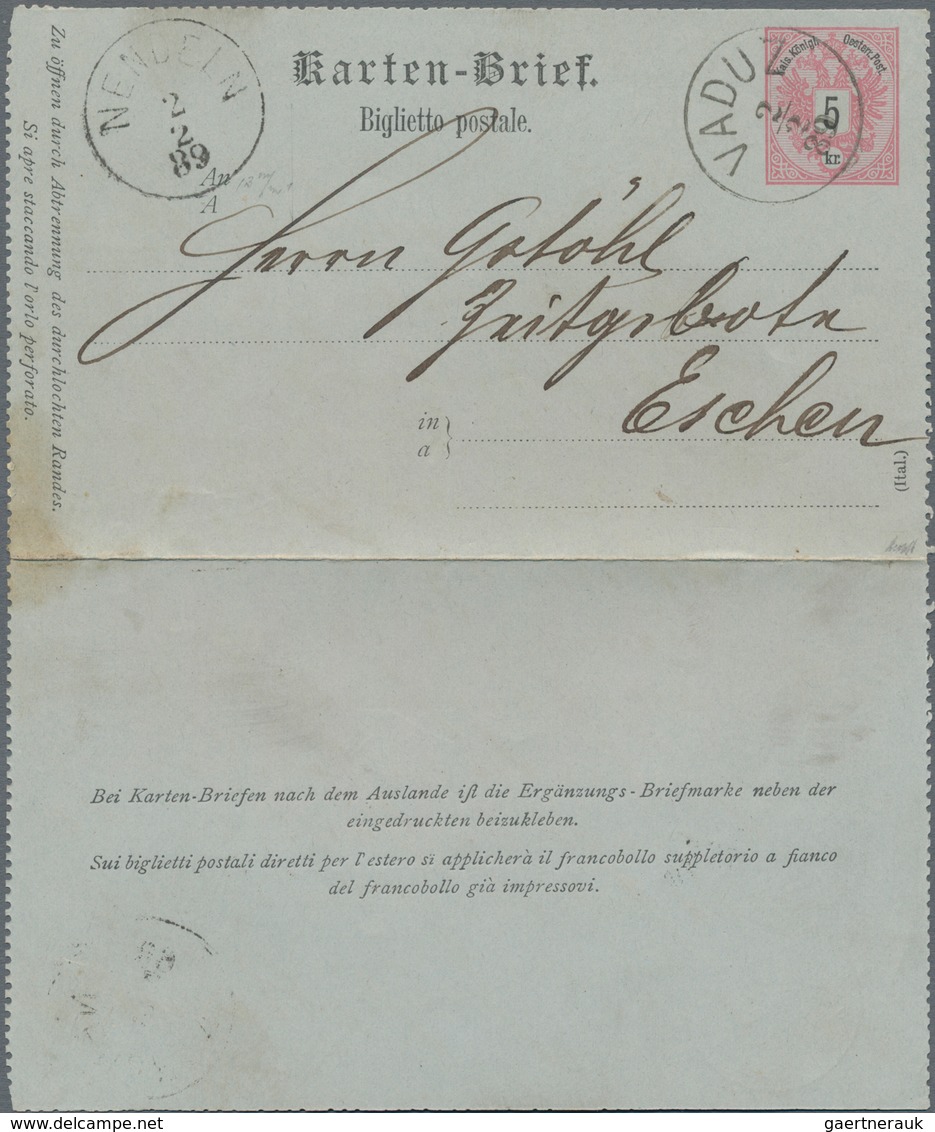 Zu öffnen durch Abtrennung des durchlochten Randes.
Si apre staccando l'orlo perforato.
NENDELN
2
2
89
Karten-Brief.
Biglietto postale.
VADUZ
2/2 89
Kais. Königl. Oesterr. Post.
5
kr.
An
A
Herrn Gstöhl
Zeitgsbote
in
a
Eschen
(Ital.)
Bei Karten-Briefen nach dem Auslande iſt die Ergänzungs-Briefmarke neben der
eingedruckten beizukleben.
Sui biglietti postali diretti per l'estero si applicherà il francobollo suppletorio a fianco
del francobollo già impressovi.
delcampe.net
gaertnerauk